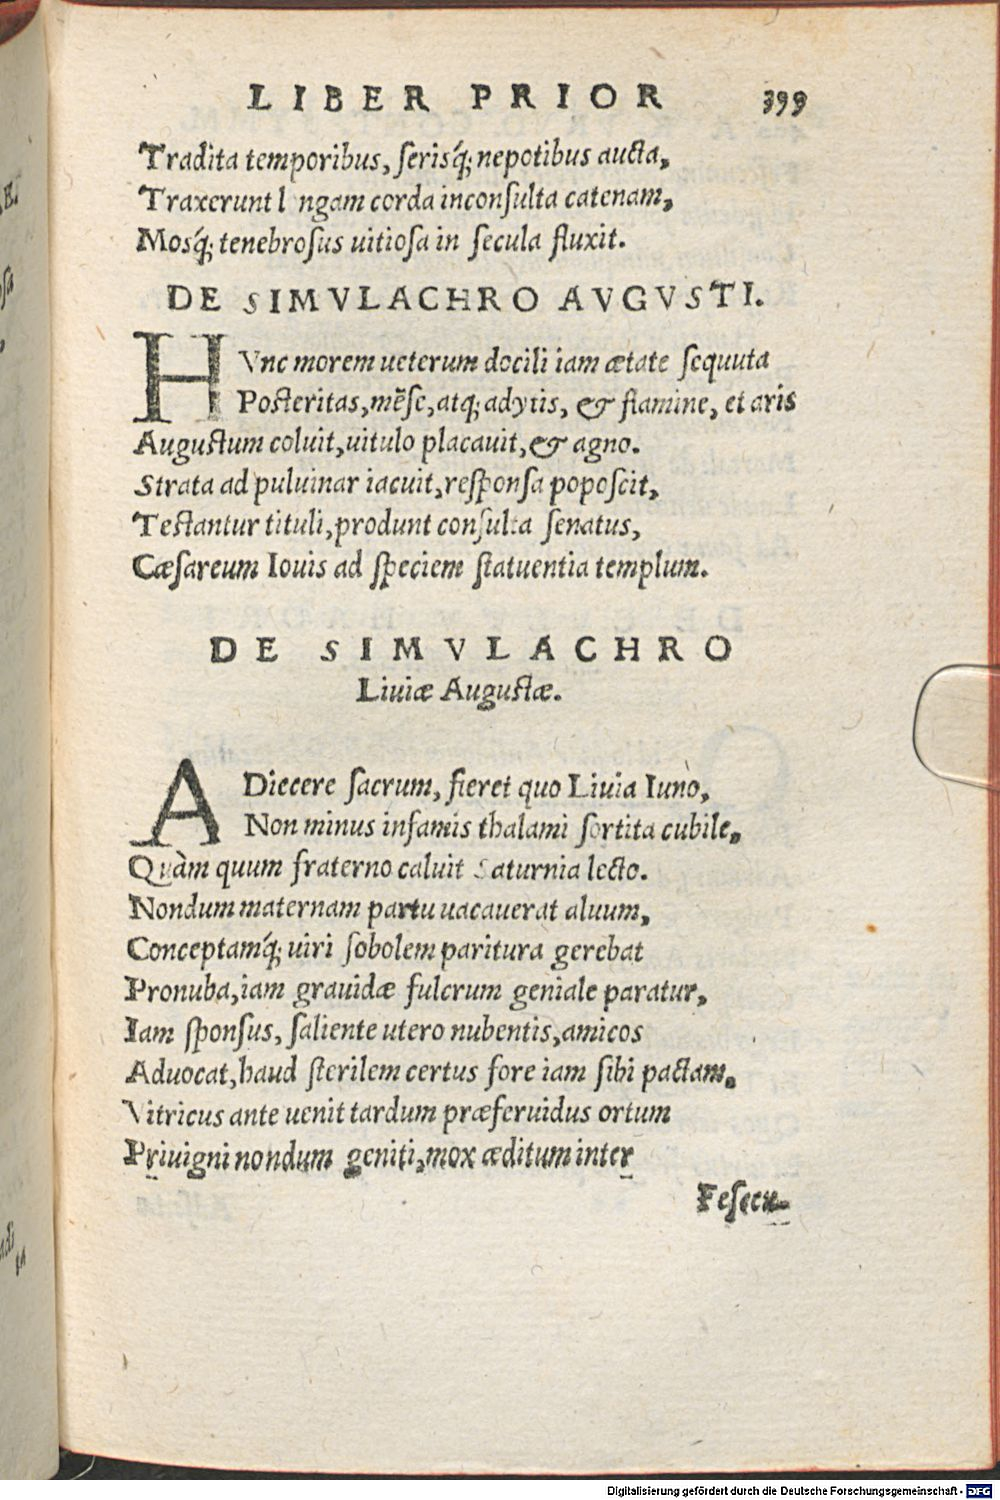 LIBER PRIOR 399
Tradita temporibus, serisq́; nepotibus aucta,
Traxerunt l ngam corda inconsulta catenam,
Mosq́; tenebrosus uitiosa in secula fluxit.
DE SIMVLACHRO AVGVSTI.
HVnc morem ueterum docili iam ætate sequuta
Posteritas, mẽse, atq; adytis, & flamine, et aris
Augustum coluit, uitulo placauit, & agno.
Strata ad puluinar iacuit, responsa poposcit,
Testantur tituli, produnt consulta senatus,
Cæsareum Iouis ad speciem statuentia templum.
DE SIMVLACHRO
Liuiæ Augustæ.
ADiecere sacrum, fieret quo Liuia Iuno,
Non minus infamis thalami sortita cubile,
Quàm quum fraterno caluit Saturnia lecto.
Nondum maternam partu uacauerat aluum,
Conceptamq́; uiri sobolem paritura gerebat
Pronuba, iam grauidæ fulcrum geniale paratur,
Iam sponsus, saliente utero nubentis, amicos
Aduocat, haud sterilem certus fore iam sibi pactam.
Vitricus ante uenit tardum præferuidus ortum
Priuigni nondum geniti, mox æditum inter
Fescen-
Digitalisierung gefördert durch die Deutsche Forschungsgemeinschaft - DFG